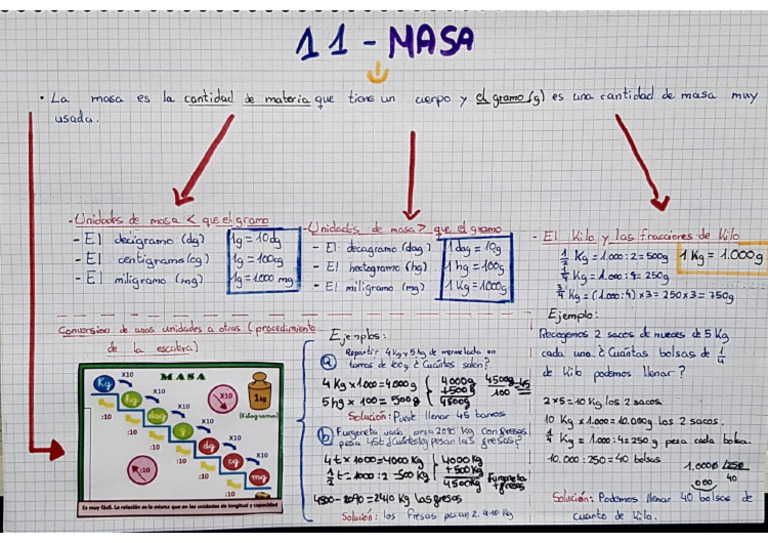 11 - MASA
· La masa es la cantidad de materia que tiene un cuerpo y el gramo (g) es una cantidad de masa muy
usada.
- Unidades de masa < que el gramo
- El decigramo (dg)
- El centigramo (cg)
- El miligramo (mg)
1g = 10dg
1g = 100cg
1g = 1.000 mg
- Unidades de masa > que el gramo
- El decagramo (dag)
- El hectogramo (hg)
- El miligramo (mg)
1 dag = 10g
1 hg = 100g
1 Kg = 1000g
- El Kilo y las fracciones de Kilo
1/2 Kg = 1.000 : 2 = 500g
1/4 Kg = 1.000 : 4 = 250g
3/4 Kg = (1.000 : 4) x 3 = 250 x 3 = 750g
1 Kg = 1.000g
Conversion de unas unidades a otras (procedimiento
de la escalera)
MASA
Kg
hg
dag
g
dg
cg
mg
X10
X10
X10
X10
X10
X10
:10
:10
:10
:10
:10
:10
X10
:10
1kg
(Kilogramo)
Es muy fácil. La relación es la misma que en las unidades de longitud y capacidad
Ejemplos:
a Repartir 4Kg y 5 hg de mermelada en
tarros de 100g ¿Cuántos salen?
4 Kg x 1.000 = 4000g
5 hg x 100 = 500g
4000g
+500g
4500g
4500g = 45
100
Solución: Puede llenar 45 tarros
b Furgoneta vacía 2090 Kg con fresas
pesa ¿Cuántos Kg pesan las fresas?
4 t x 1000 = 4000 Kg
1/2 t = 1000 : 2 = 500 Kg
4000 Kg
+500 Kg
4500 Kg
Furgoneta
+ fresas
4500 - 2090 = 2410 Kg las fresas
Solución: las fresas pesan 2.410 Kg
Ejemplo:
Recogemos 2 sacos de nueces de 5 Kg
cada uno. ¿Cuántas bolsas de 1/4
de Kilo podemos llenar?
2 x 5 = 10 Kg los 2 sacos.
10 Kg x 1.000 = 10.000g los 2 sacos.
1/4 Kg = 1.000 : 4 = 250 g pesa cada bolsa.
10.000 : 250 = 40 bolsas
1.0000 250
000 40
Solución: Podemos llenar 40 bolsas de
cuarto de Kilo.